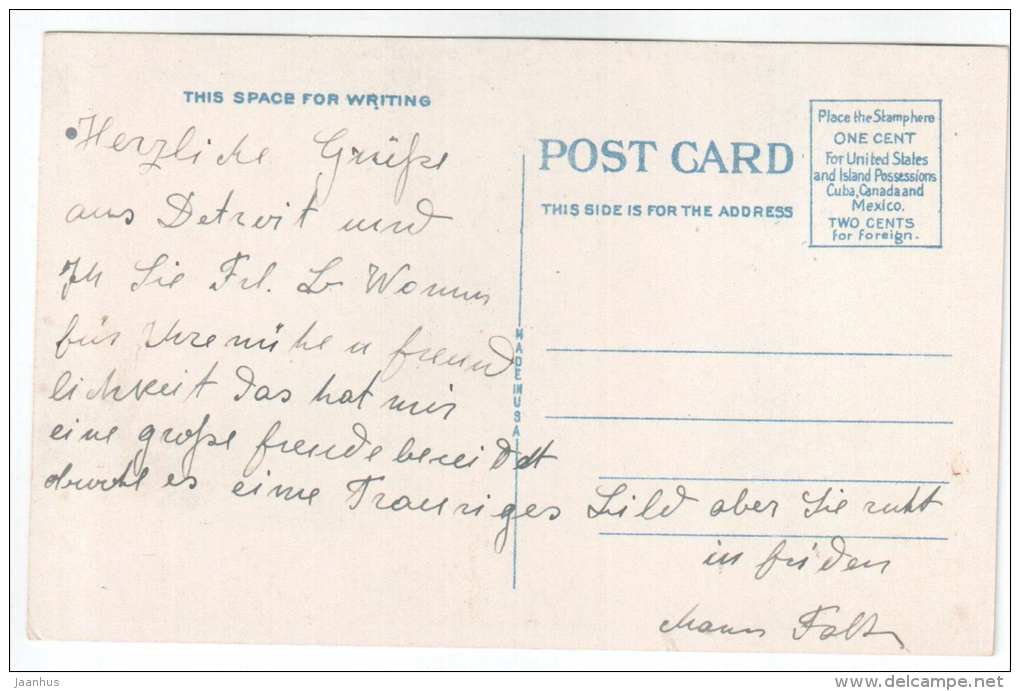 THIS SPACE FOR WRITING
Herzliche Grüße
aus Detroit und
Sie Frl.
für Ihre mühe u freund
lichkeit das hat mir
eine große freude bereidet
obwohl es eine Trauriges Bild aber Sie ruht
in friden
POST CARD
THIS SIDE IS FOR THE ADDRESS
Place the Stamp here
ONE CENT
For United States
and Island Possessions
Cuba, Canada and
Mexico.
TWO CENTS
for foreign.
MADE IN USA
Jaanhus
delcampe.net